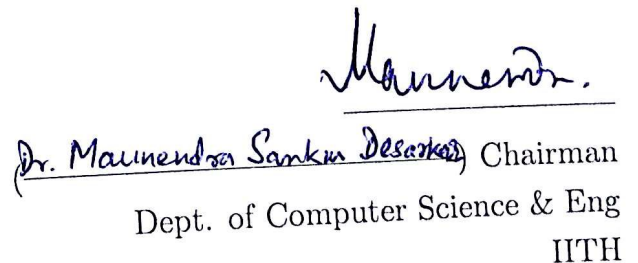 Maunendra.
(Dr. Maunendra Sankar Desarkar) Chairman
Dept. of Computer Science & Eng
IITH